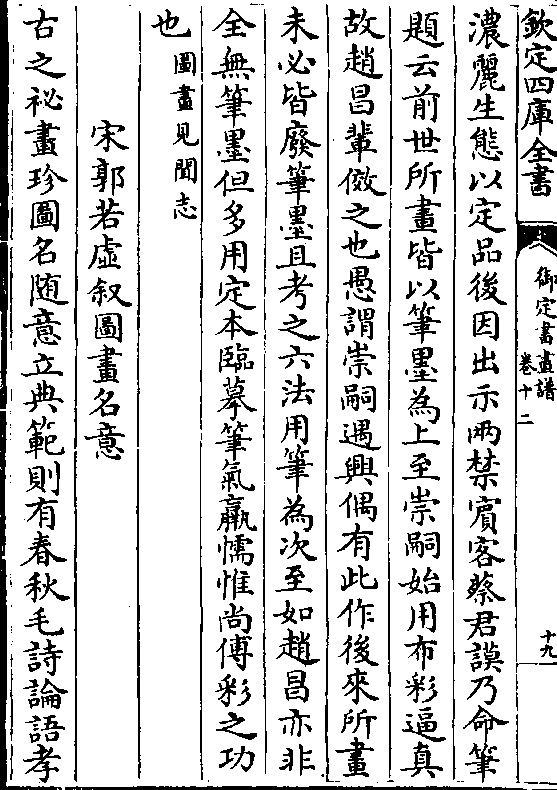 欽定四庫全書
御定書畫譜
卷十二
十九
濃麗生態以定品後因出示兩禁賓客蔡君謨乃命筆
題云前世所畫皆以筆墨為上至崇嗣始用布彩逼真
故趙昌輩傚之也愚謂崇嗣遇興偶有此作後來所畫
未必皆廢筆墨且考之六法用筆為次至如趙昌亦非
全無筆墨但多用定本臨摹筆氣羸懦惟尚傅彩之功
也圖畫見聞志
宋郭若虛叙圖畫名意
古之祕畫珍圖名随意立典範則有春秋毛詩論語孝